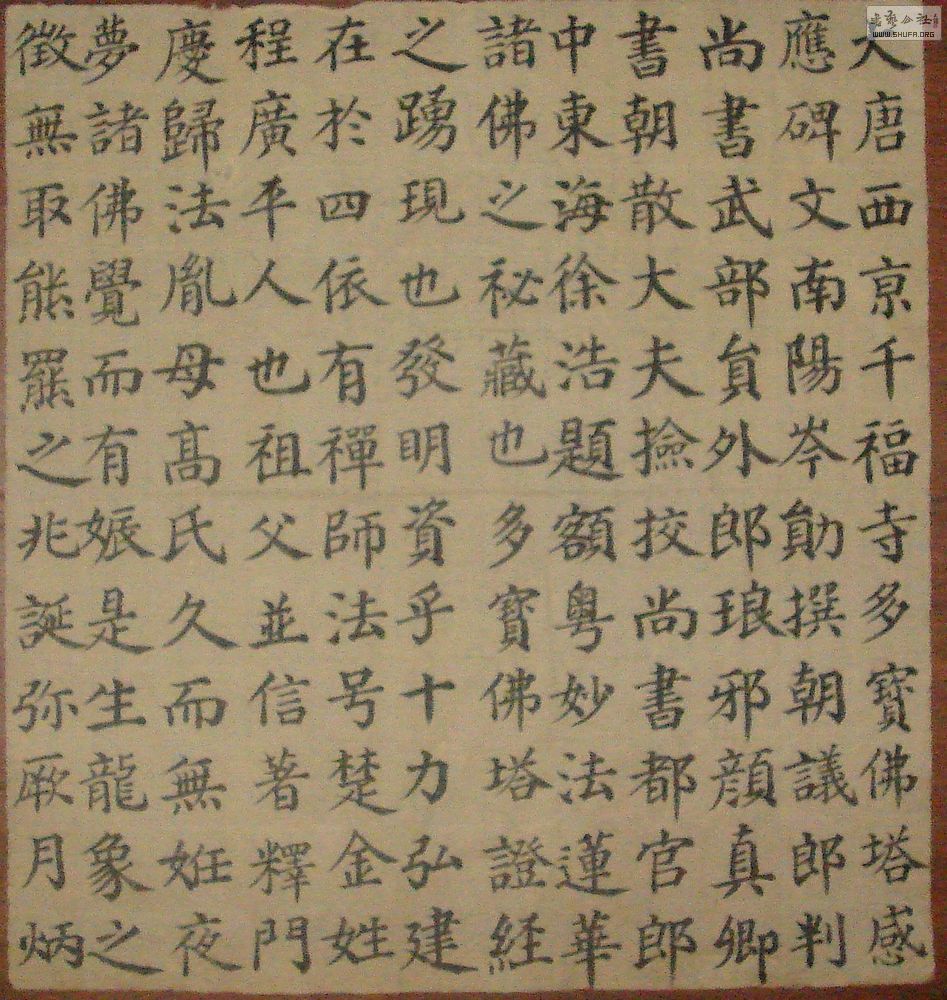 大唐西京千福寺多寶佛塔感
應碑文南陽岑勛撰朝議郎判
尚書武部貟外郎琅邪顏真卿
書朝散大夫撿挍尚書都官郎
中東海徐浩題額粤妙法蓮華
諸佛之祕藏也多寶佛塔證経
之踴現也發明資乎十力弘建
在於四依有禪師法号楚金姓
程廣平人也祖父並信著釋門
慶歸法胤母髙氏久而無姙夜
夢諸佛覺而有娠是生龍象之
徵無取熊羆之兆誕弥厥月炳
WWW.SHUFA.ORG